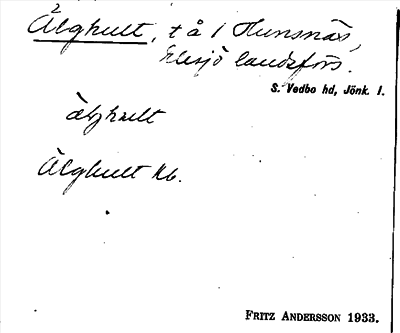 Älghult, t å 1 Hunsnäs,
Eksjö landsförs.
S. Vedbo hd, Jönk. l.
älghult
Älghult Kb.
FRITZ ANDERSSON 1933.